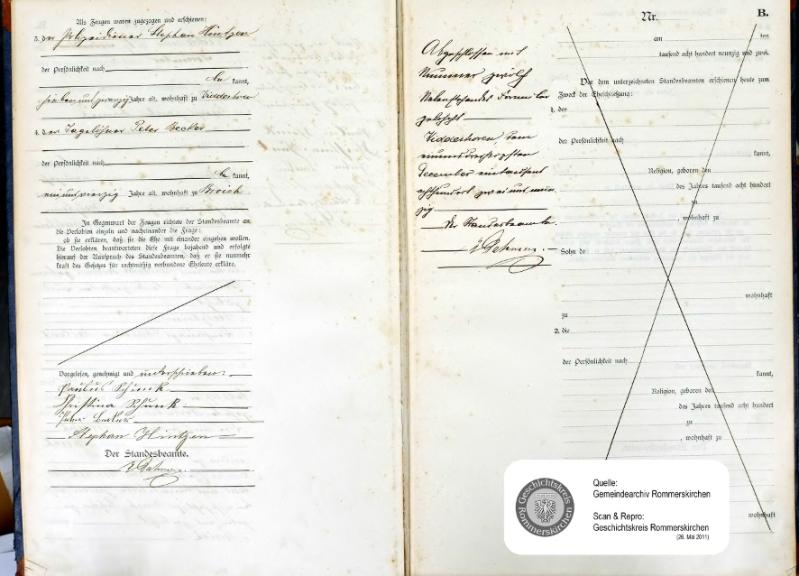 Als Zeugen waren zugezogen und erschienen:
3. der Polizeidiener Stephan Hintzen
der Persönlichkeit nach
be kannt,
siebenundzwanzig Jahre alt, wohnhaft zu Widdeshoven
4. der Tagelöhner Peter Becker
der Persönlichkeit nach
be kannt,
einundvierzig Jahre alt, wohnhaft zu Broich
In Gegenwart der Zeugen richtete der Standesbeamte an
die Verlobten einzeln und nacheinander die Frage:
ob sie erklären, daß sie die Ehe mit einander eingehen wollen.
Die Verlobten beantworteten diese Frage bejahend und erfolgte
hierauf der Ausspruch des Standesbeamten, daß er sie nunmehr
kraft des Gesetzes für rechtmäßig verbundene Eheleute erkläre.
Vorgelesen, genehmigt und unterschrieben:
Paulus Schunk
Christina Schunk
Peter Becker
Stephan Hintzen
Der Standesbeamte.
Abgeschlossen mit
Nummer zwölf
Widdeshoven, am
einunddreißigsten
December eintausend
achthundert zwei und neun
zig
Der Standesbeamte.
B.
Nr.
am ten
tausend acht hundert neunzig und zwei.
Vor dem unterzeichneten Standesbeamten erschienen heute zum
Zweck der Eheschließung:
1. der
der Persönlichkeit nach
kannt,
Religion, geboren den
des Jahres tausend acht hundert
zu
, wohnhaft zu
Sohn de
wohnhaft
zu
2. die
der Persönlichkeit nach
kannt,
Religion, geboren den
des Jahres tausend acht hundert
zu
, wohnhaft zu
wohnhaft
Geschichtskreis
Rommerskirchen
Quelle:
Gemeindearchiv Rommerskirchen
Scan & Repro:
Geschichtskreis Rommerskirchen
(26. Mai 2011)